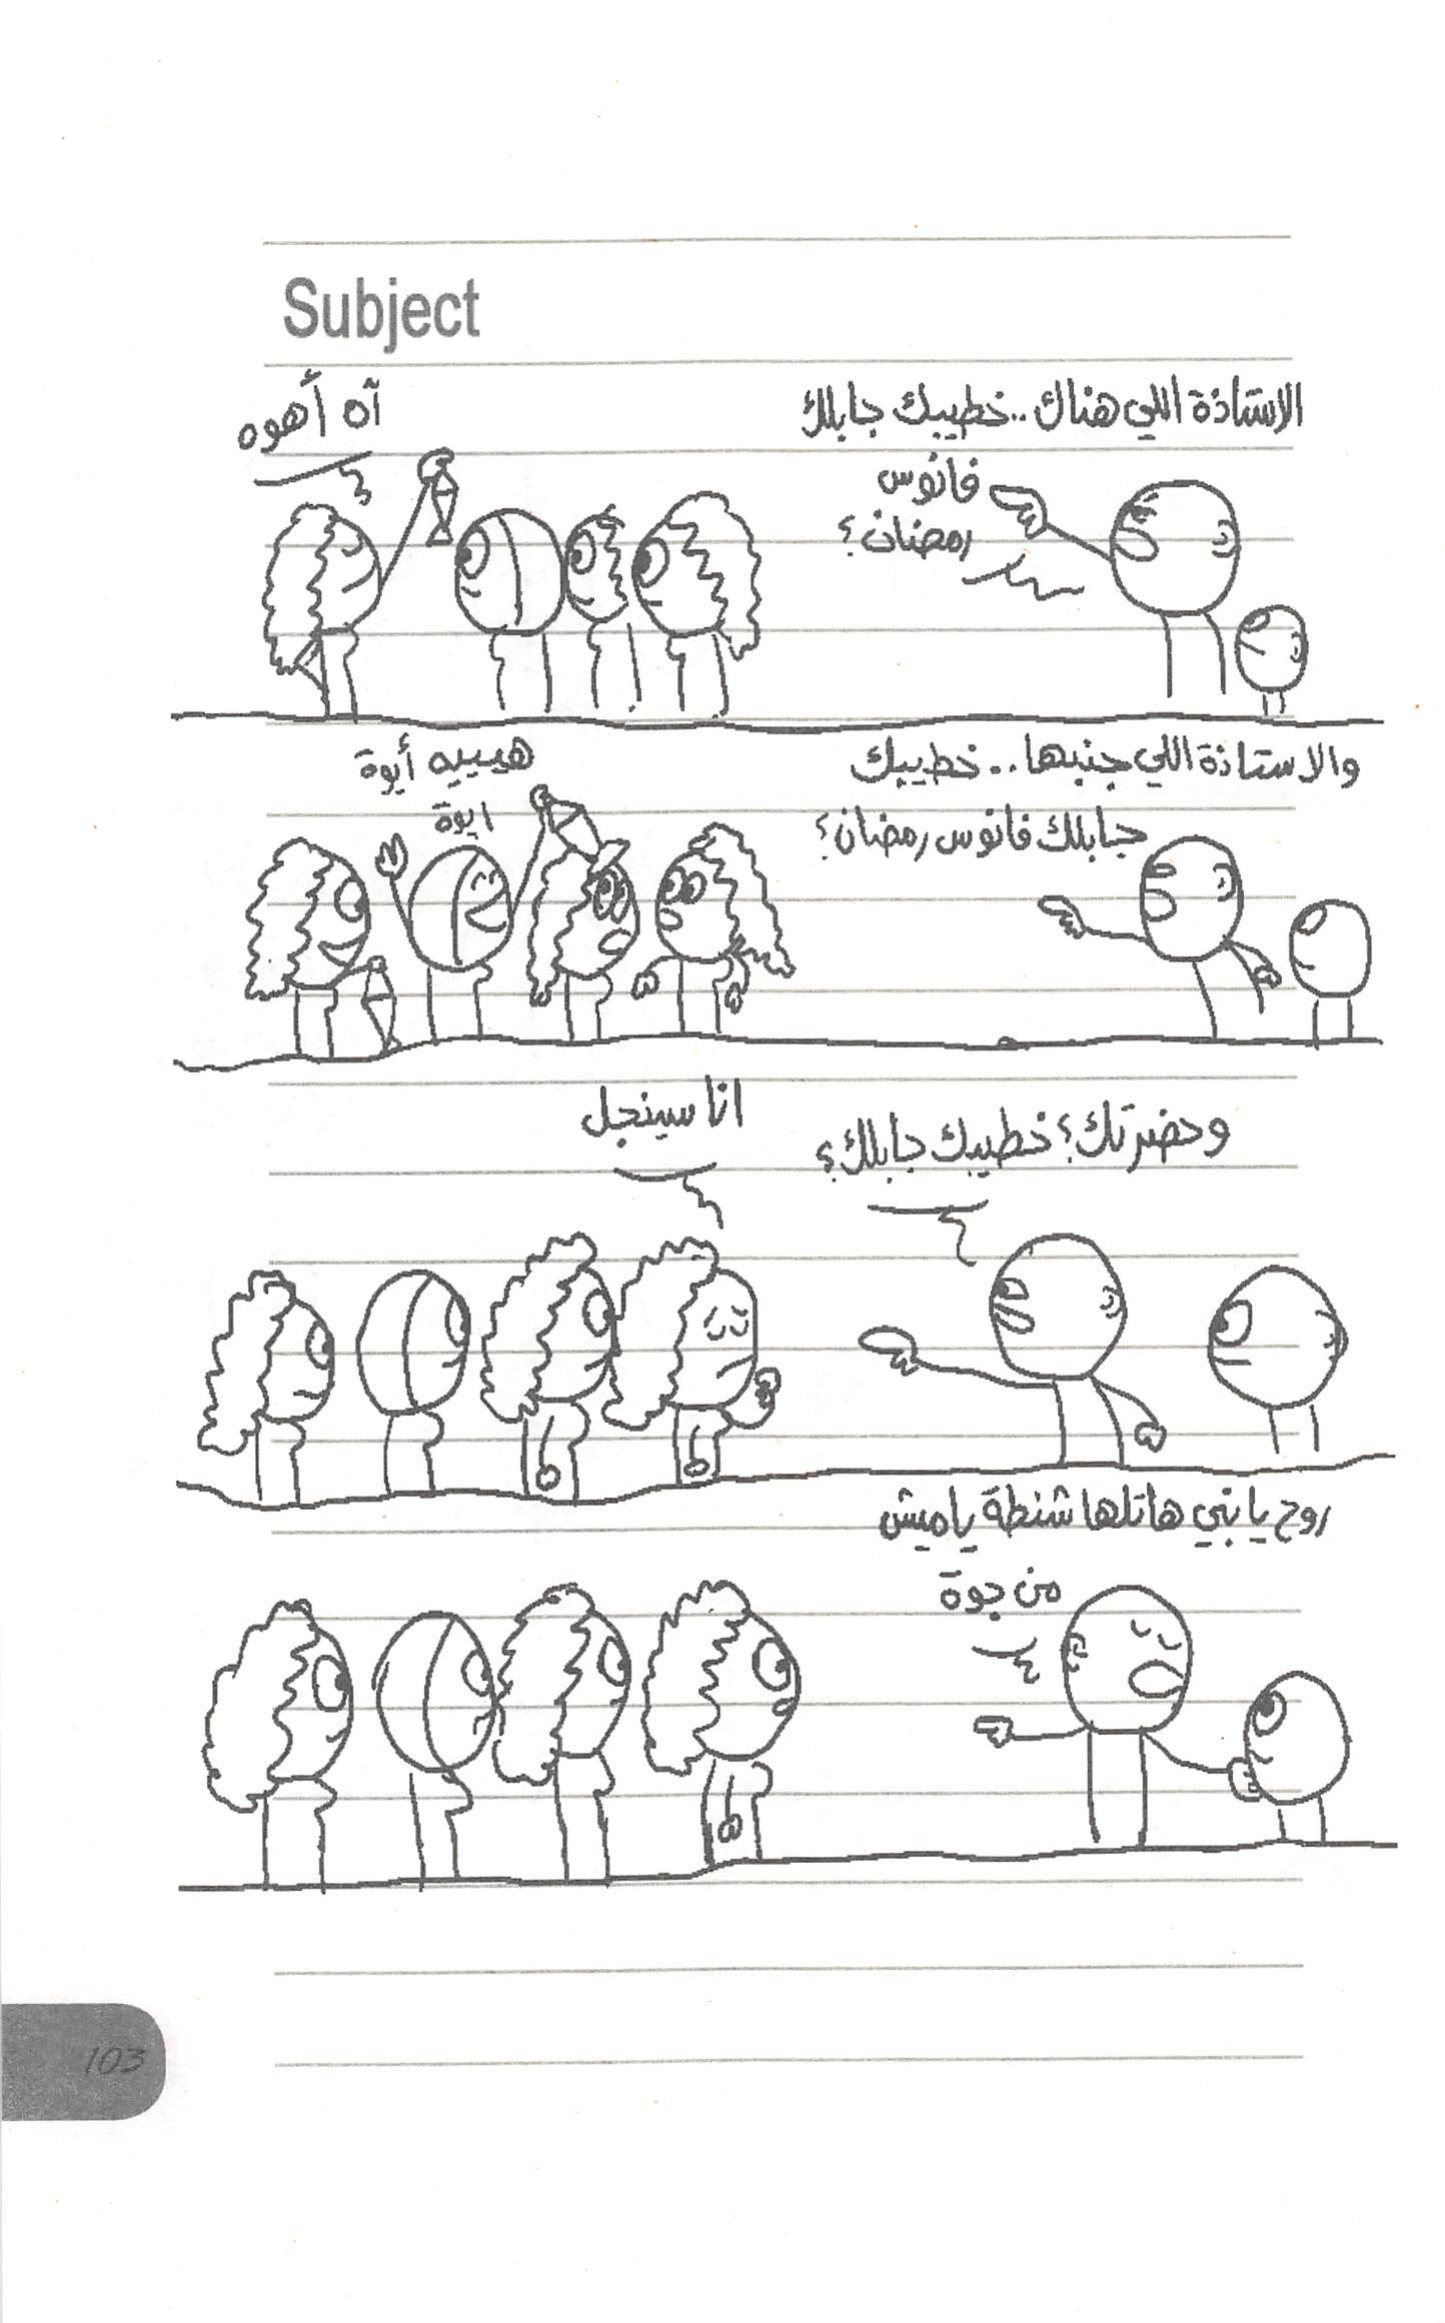 Subject
الاستاذة اللي هناك..خطيبك جابلك
فانوس
رمضان؟
آه أهوه
والاستاذة اللي جنبها..خطيبك
جابلك فانوس رمضان؟
هيييه أيوة
ايوة
وحضرتك؟ خطيبك جابلك؟
انا سينجل
روح يا بني هاتلها شنطة ياميش
من جوة
103